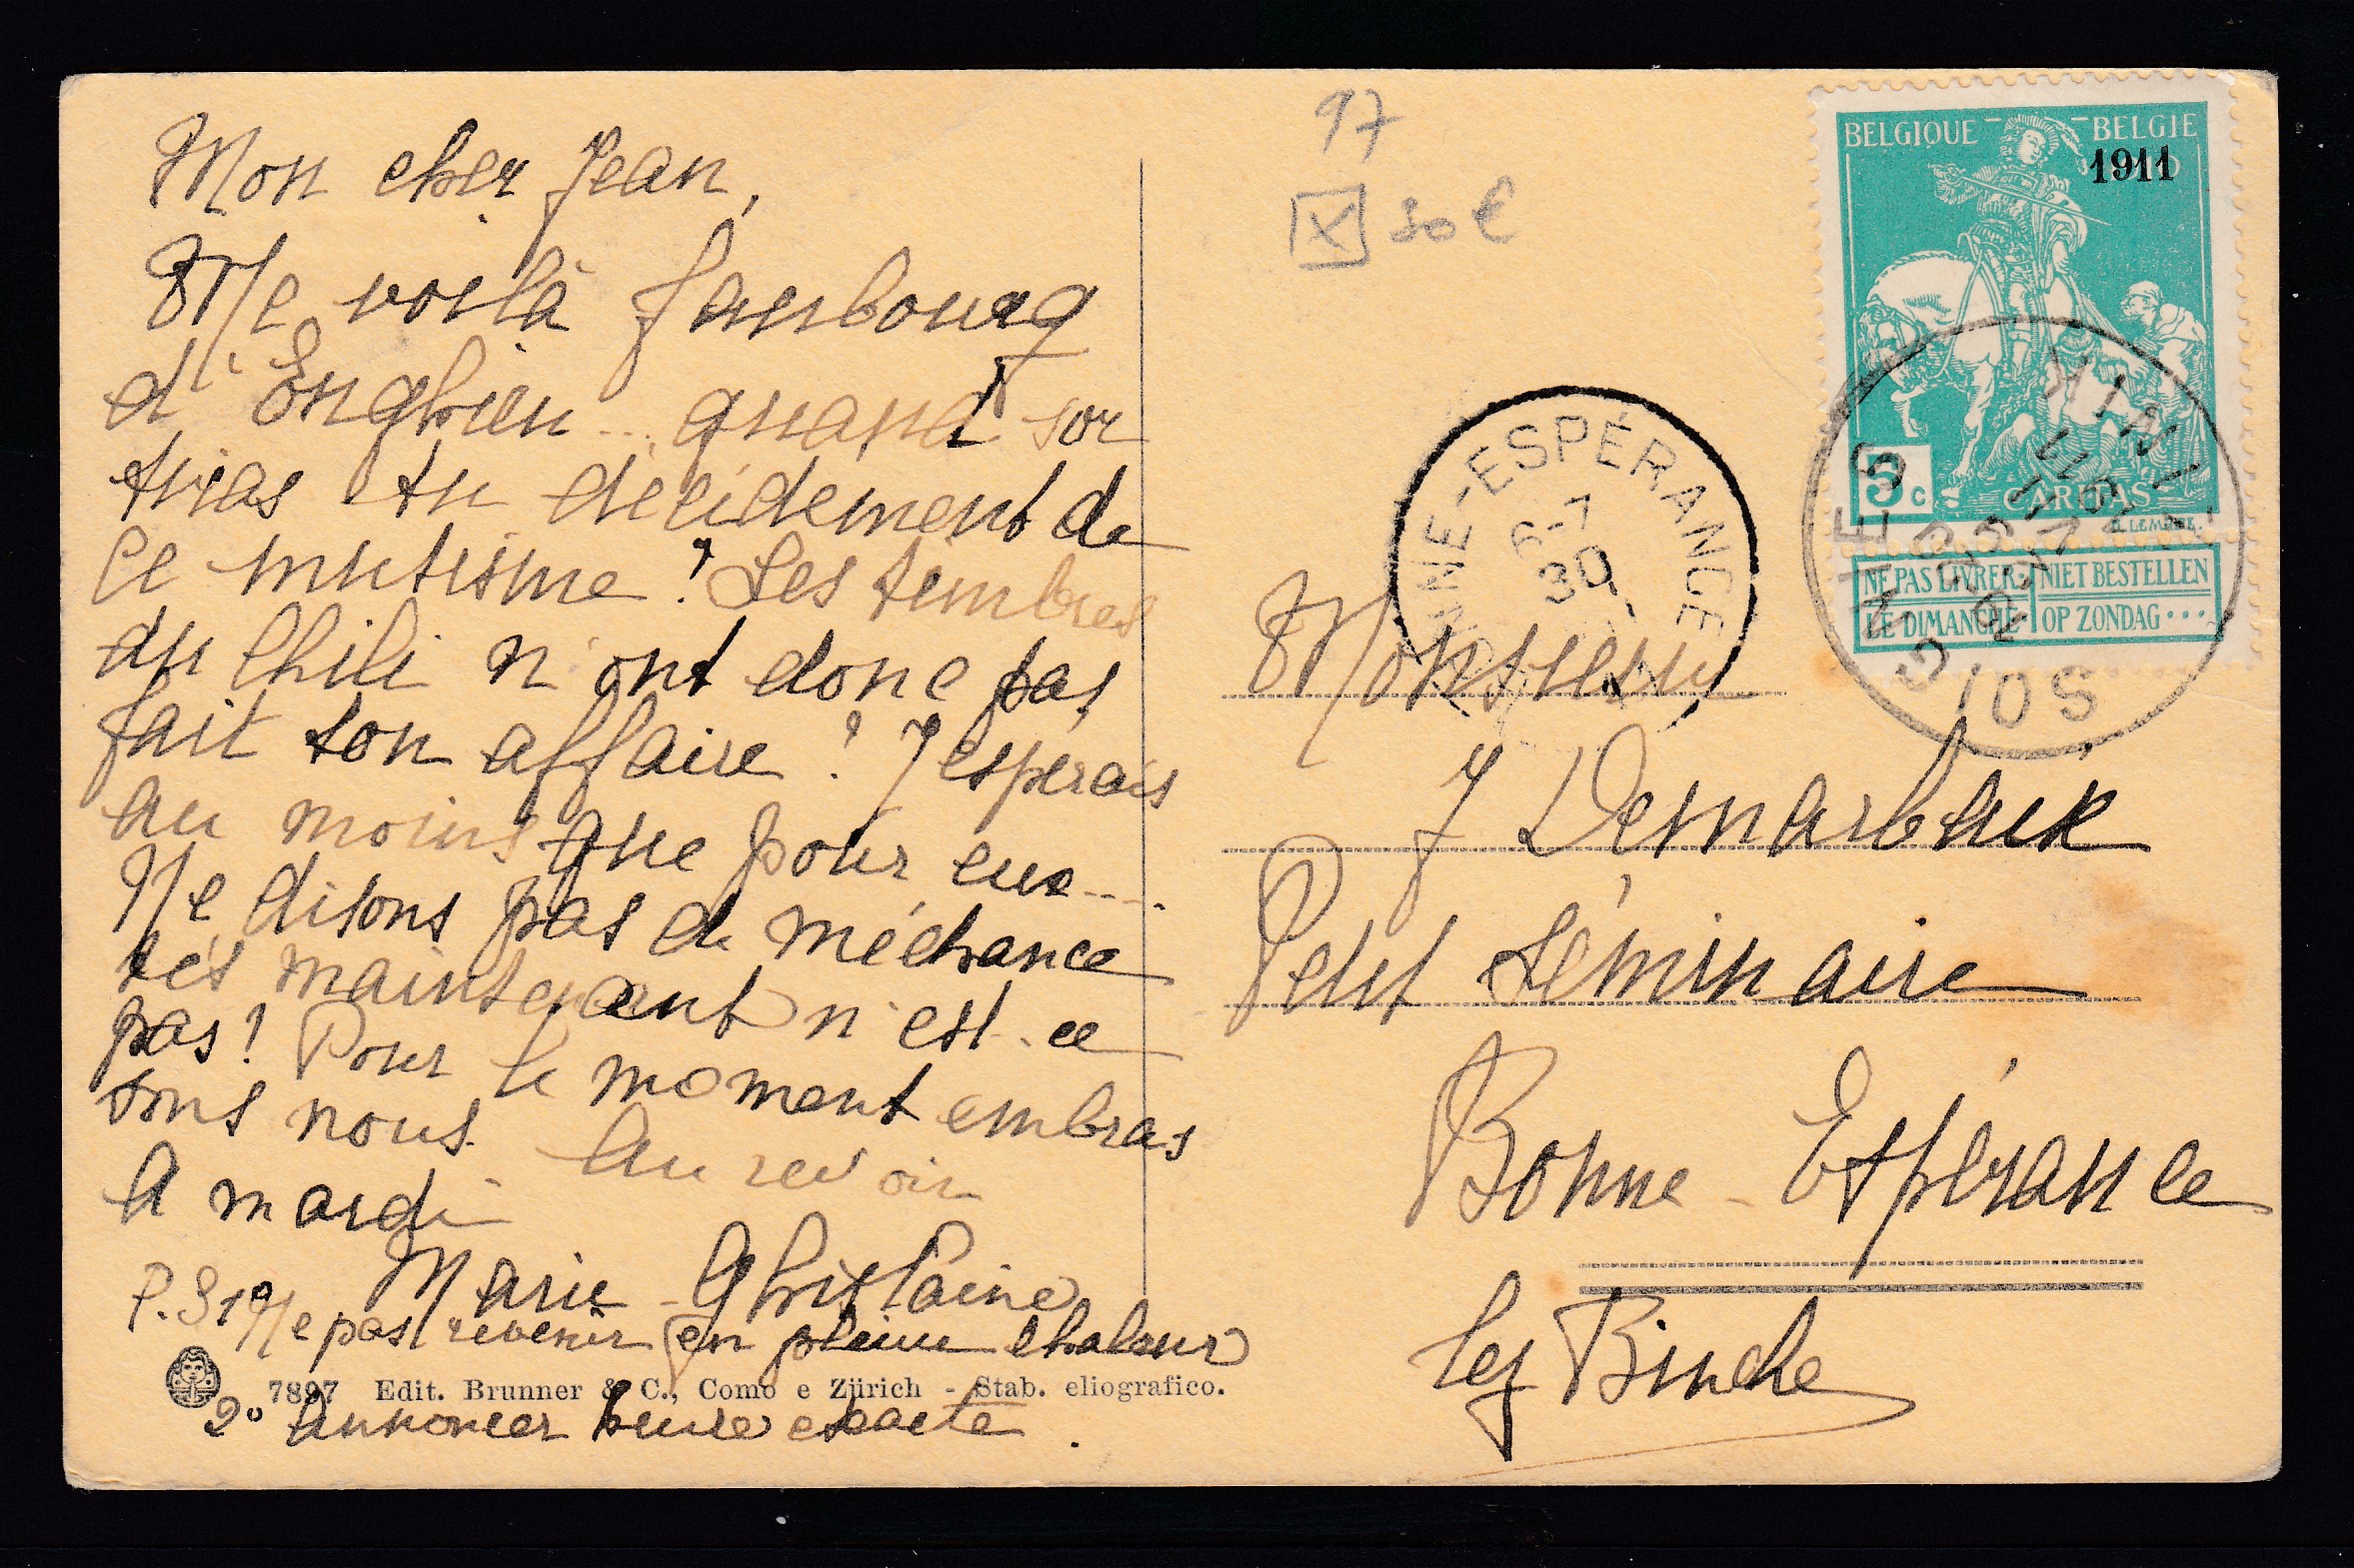 Mon cher Jean,
Me voilà faubourg
d'Enghien... quand sor
tiras tu décidement de
ce mutisme? Les timbres
du Chili n'ont donc pas
fait ton affaire? J'esperais
au moins que pour eux....
Ne disons pas de méchance
tés maintenant n'est-ce
pas! Pour le moment embras
sons nous. Au revoir
A mardi
Marie-Ghislaine
P.S 1° Ne pas revenir en pleine chaleur
7897 Edit. Brunner & C., Como e Zürich - Stab. eliografico.
2° Annoncer heure exacte.
97
X 30 €
BELGIQUE - BELGIE
1911
5 c
CARITAS
H. LEMAIRE.
NE PAS LIVRER LE DIMANCHE
NIET BESTELLEN OP ZONDAG...
SOIGNIES
1911
NNE-ESPÉRANCE
6-7
30
Monsieur
J Demarbaix
Petit Séminaire
Bonne-Espérance
lez Binche